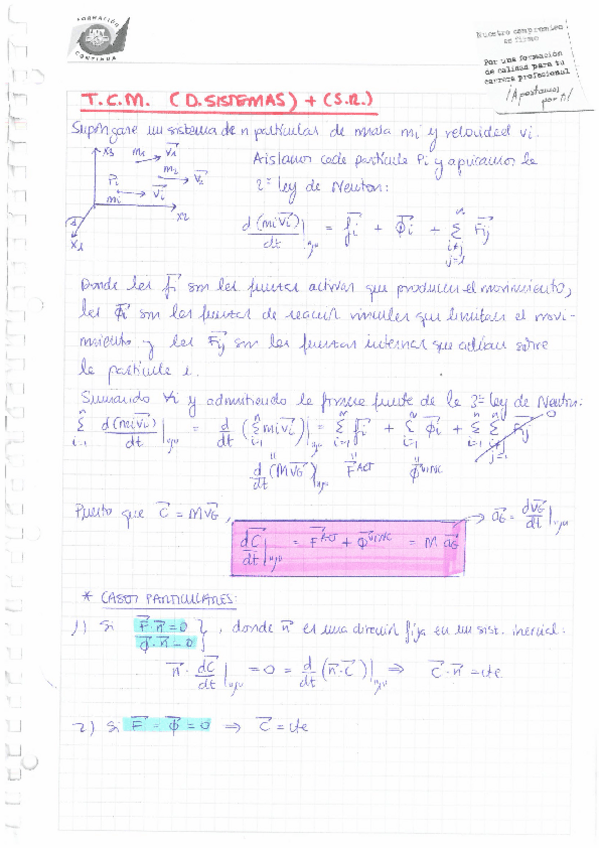 FORMACIÓN
CONTINUA
Nuestro compromiso
es firme
Por una formación
de calidad para tu
carrera profesional
¡Apostamos
por ti!
T.C.M. (D.SISTEMAS) + (S.R.)
Supóngase un sistema de n partículas de masa mi y velocidad vi.
X3 m1 V1
m2 V2
Pi Vi
mi
X2
X1
Aislamos cada partícula Pi y aplicamos la
2ª ley de Newton:
d(mi vi)/dt = fi + Φi + Σ Fij
n
i≠j
j=1
Donde las fi son las fuerzas activas que producen el movimiento,
las Φi son las fuerzas de reacción vinculares que limitan el movi-
miento y las Fij son las fuerzas internas que actúan sobre
la partícula i.
Sumando ∀i y admitiendo la forma fuerte de la 3ª ley de Newton:
Σ d(mi vi)/dt = d/dt (Σ mi vi) = Σ fi + Σ Φi + Σ Σ Fij 0
d/dt (M vG) F ACT Φ VINC
Puesto que C = M vG, aG = d vG/dt
dC/dt = F ACT + Φ VINC = M aG
* CASOS PARTICULARES:
1) Si F·n = 0 } , donde n es una dirección fija en un sist. inercial:
Φ·n = 0 }
n · dC/dt = 0 = d/dt (n·C) ⇒ C·n = cte
2) Si F = Φ = 0 ⇒ C = cte